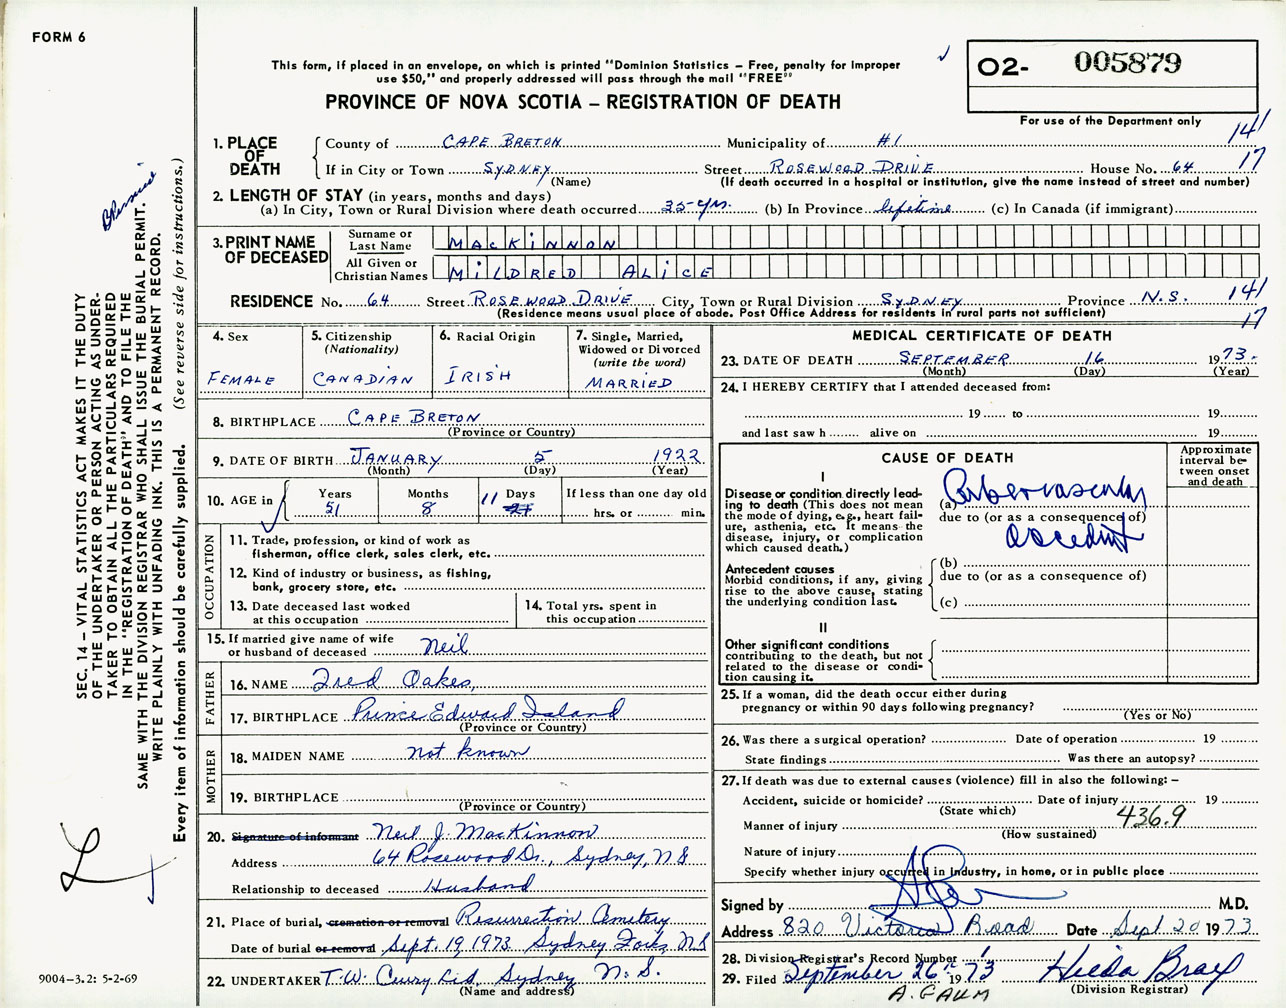 FORM 6
This form, if placed in an envelope, on which is printed "Dominion Statistics – Free, penalty for improper
use $50," and properly addressed will pass through the mail "FREE"
O2- 005879
PROVINCE OF NOVA SCOTIA – REGISTRATION OF DEATH
For use of the Department only
141
17
1. PLACE OF DEATH
County of CAPE BRETON Municipality of #1
If in City or Town SYDNEY Street ROSEWOOD DRIVE House No. 64
(Name) (If death occurred in a hospital or institution, give the name instead of street and number)
2. LENGTH OF STAY (in years, months and days)
(a) In City, Town or Rural Division where death occurred 35 yrs. (b) In Province lifetime (c) In Canada (if immigrant)
3. PRINT NAME OF DECEASED
Surname or Last Name MACKINNON
All Given or Christian Names MILDRED ALICE
RESIDENCE No. 64 Street ROSEWOOD DRIVE City, Town or Rural Division SYDNEY Province N.S. 141
(Residence means usual place of abode. Post Office Address for residents in rural parts not sufficient) 17
4. Sex
FEMALE
5. Citizenship
(Nationality)
CANADIAN
6. Racial Origin
IRISH
7. Single, Married,
Widowed or Divorced
(write the word)
MARRIED
8. BIRTHPLACE CAPE BRETON
(Province or Country)
9. DATE OF BIRTH JANUARY 5 1922
(Month) (Day) (Year)
10. AGE in Years Months Days If less than one day old
51 8 11 hrs. or min.
OCCUPATION
11. Trade, profession, or kind of work as
fisherman, office clerk, sales clerk, etc.
12. Kind of industry or business, as fishing,
bank, grocery store, etc.
13. Date deceased last worked
at this occupation
14. Total yrs. spent in
this occupation
15. If married give name of wife
or husband of deceased Neil
FATHER
16. NAME Fred Oakes,
17. BIRTHPLACE Prince Edward Island
(Province or Country)
MOTHER
18. MAIDEN NAME Not known
19. BIRTHPLACE
(Province or Country)
20. Signature of informant Neil J. MacKinnon
Address 64 Rosewood Dr., Sydney, N S
Relationship to deceased Husband
21. Place of burial, cremation or removal Resurrection Cemetery
Date of burial or removal Sept. 19, 1973 Sydney Forks, N S
22. UNDERTAKER T. W. Curry Ltd, Sydney N. S.
(Name and address)
MEDICAL CERTIFICATE OF DEATH
23. DATE OF DEATH SEPTEMBER 16 1973
(Month) (Day) (Year)
24. I HEREBY CERTIFY that I attended deceased from:
19 to 19
and last saw h alive on 19
CAUSE OF DEATH
Approximate
interval be-
tween onset
and death
I
Disease or condition directly lead-
ing to death (This does not mean
the mode of dying, e.g., heart fail-
ure, asthenia, etc. It means the
disease, injury, or complication
which caused death.)
(a)
due to (or as a consequence of)
accident
Antecedent causes
Morbid conditions, if any, giving
rise to the above cause, stating
the underlying condition last.
(b)
due to (or as a consequence of)
(c)
II
Other significant conditions
contributing to the death, but not
related to the disease or condi-
tion causing it.
25. If a woman, did the death occur either during
pregnancy or within 90 days following pregnancy?
(Yes or No)
26. Was there a surgical operation? Date of operation 19
State findings Was there an autopsy?
27. If death was due to external causes (violence) fill in also the following: –
Accident, suicide or homicide? Date of injury 19
(State which)
436.9
Manner of injury
(How sustained)
Nature of injury
Specify whether injury occurred in industry, in home, or in public place
Signed by M.D.
Address 820 Victoria Road Date Sept 20 1973
28. Division Registrar's Record Number
29. Filed September 26th 1973 Hilda Bray
(Division Registrar)
SEC. 14 – VITAL STATISTICS ACT MAKES IT THE DUTY
OF THE UNDERTAKER OR PERSON ACTING AS UNDER-
TAKER TO OBTAIN ALL THE PARTICULARS REQUIRED
IN THE "REGISTRATION OF DEATH" AND TO FILE THE
SAME WITH THE DIVISION REGISTRAR WHO SHALL ISSUE THE BURIAL PERMIT.
WRITE PLAINLY WITH UNFADING INK. THIS IS A PERMANENT RECORD.
Every item of information should be carefully supplied. (See reverse side for instructions.)
9004–3.2: 5-2-69